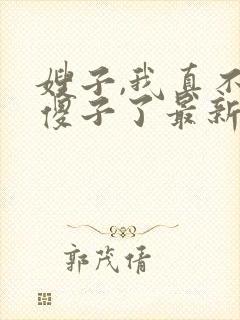 嫂子,我真不
傻子了最新
郭茂倩